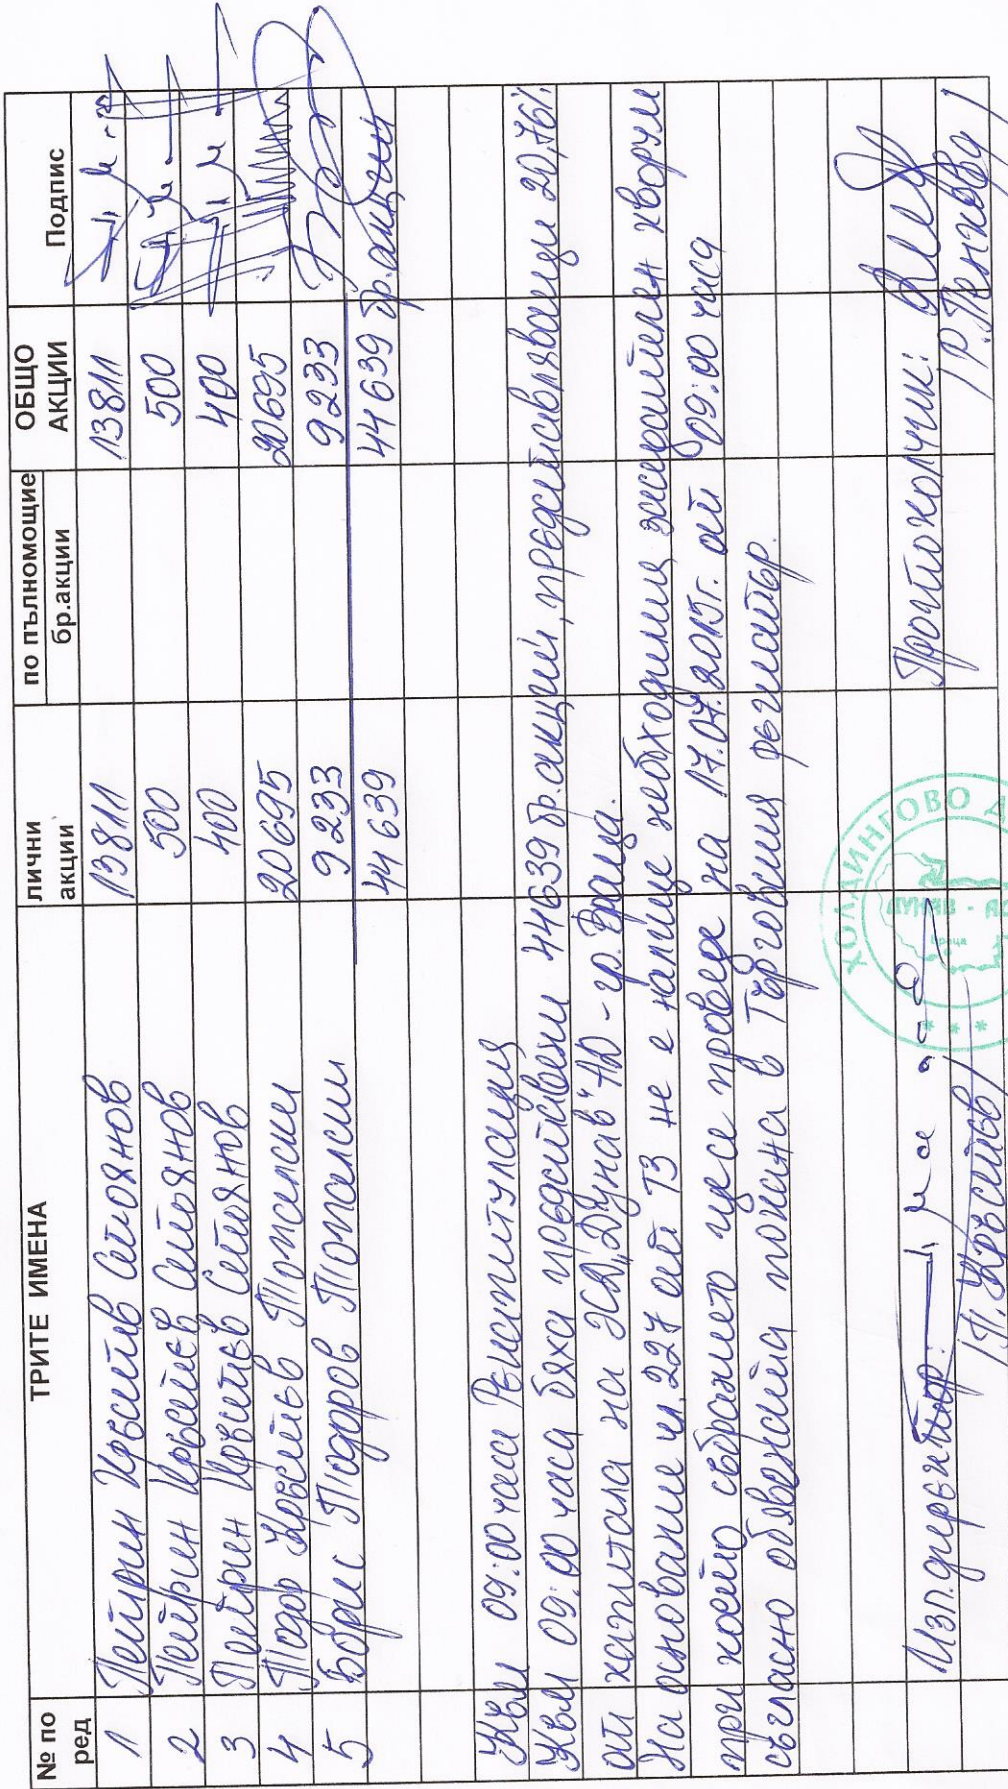 № по ред ТРИТЕ ИМЕНА лични акции по пълномощие бр.акции ОБЩО АКЦИИ Подпис
1 Петрин Кръстев Стоянов 13811 13811
2 Петрин Кръстев Стоянов 500 500
3 Петрин Кръстев Стоянов 400 400
4 Тодор Кръстев Топалски 20695 20695
5 Борис Тодоров Топалски 9233 9233
44639 44639 бр.акции
Към 09:00 часа Рекапитулация
Към 09:00 часа бяха представени 44639 бр.акции, представляващи 20,76%
от капитала на ХД„Дунав"АД - гр.Враца.
На основание чл.227 от ТЗ не е налице необходимия законен кворум
при което събранието ще се проведе на 17.07.2015г. от 09:00 часа
съгласно обявената покана в Търговския регистър.
Изп.директор: Протоколчик:
/П.Кръстев/ /Р.Ценкова/
ХОЛДИНГОВО
ДУНАВ - АД
Враца